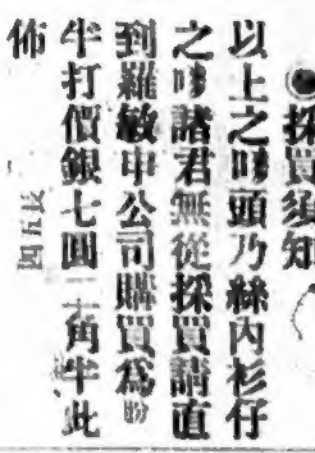 ●採買須知
以上之嘜頭乃絲內衫仔
之嘜諸君無從採買請直
到羅敏申公司購買爲盼
半打價銀七圓二角半此
佈
長五四